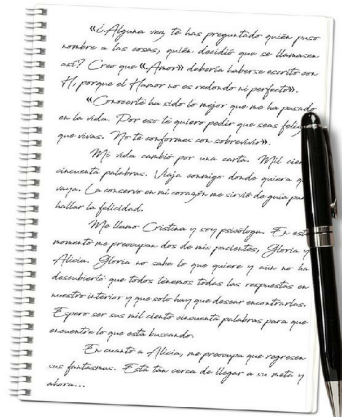 «¿Alguna vez te has preguntado quién puso
nombre a las cosas, quién decidió que se llamasen
así? Creo que «Amor» debería haberse escrito con
H, porque el Hamor no es redondo ni perfecto».
«Conocerte ha sido lo mejor que me ha pasado
en la vida. Por eso te quiero pedir que seas feliz,
que vivas. No te conformes con sobrevivir».
Mi vida cambió por una carta. Mil cien
cincuenta palabras. Viaja conmigo donde quiera q
vaya. La conservo en mi corazón me sirvió de guía par
hallar la felicidad.
Me llamo Cristina y soy psicóloga. En est
momento me preocupan dos de mis pacientes, Gloria y
Alicia. Gloria no sabe lo que quiere y aún no ha
descubierto que todos tenemos todas las respuestas en
nuestro interior y que solo hay que desear encontrarlas.
Espero ser sus mil ciento cincuenta palabras para que
encuentre lo que está buscando.
En cuanto a Alicia, me preocupa que regresen
sus fantasmas. Está tan cerca de llegar a su meta y
ahora...